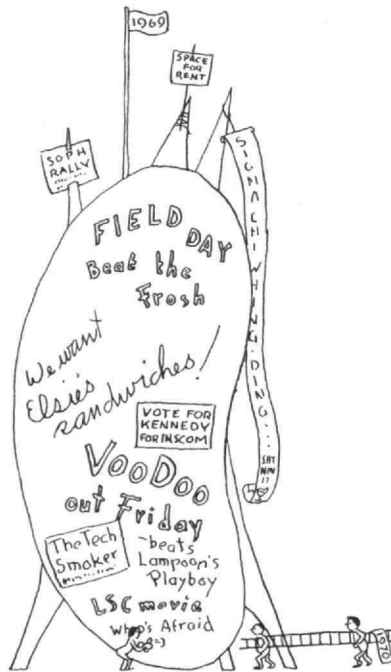 1969
SPACE
FOR
RENT
SOPH
RALLY
SIGMA CHI WHING-DING...
SAT
NOV
11
FIELD DAY
Beat the
Frosh
We want
Elsie's
sandwiches!
VOTE FOR
KENNEDY
FOR INSCOM
VooDoo
out Friday
-beats
Lampoon's
Playboy
The Tech
Smoker
LSC movie
Who's Afraid